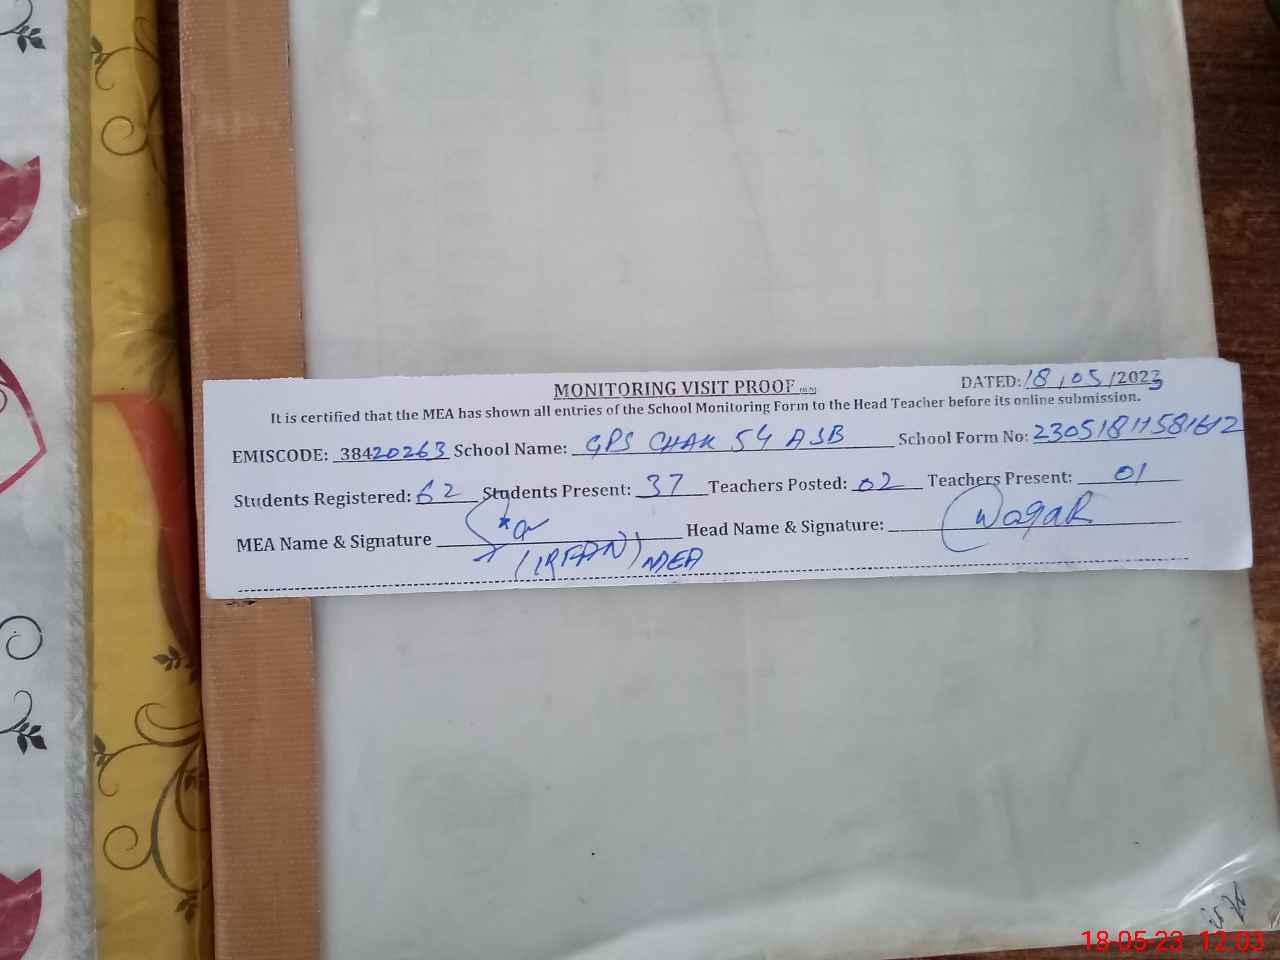 MONITORING VISIT PROOF
DATED: 18/05/2023
It is certified that the MEA has shown all entries of the School Monitoring Form to the Head Teacher before its online submission.
EMISCODE: 38420263 School Name: GPS CHAK 54 ASB School Form No: 23051811581612
Students Registered: 62 Students Present: 37 Teachers Posted: 02 Teachers Present: 01
MEA Name & Signature Head Name & Signature: WaqaR
(IRFAN) MEA
18-05-23 12:03